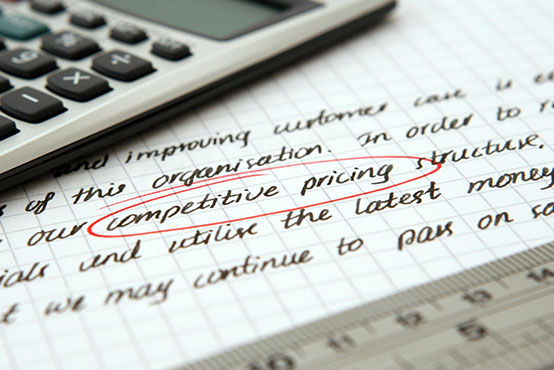 and improving customer care is
of this organisation. In order to
our competitive pricing structure.
and utilise the latest money
we may continue to pass on
10 11 12 13 14
5